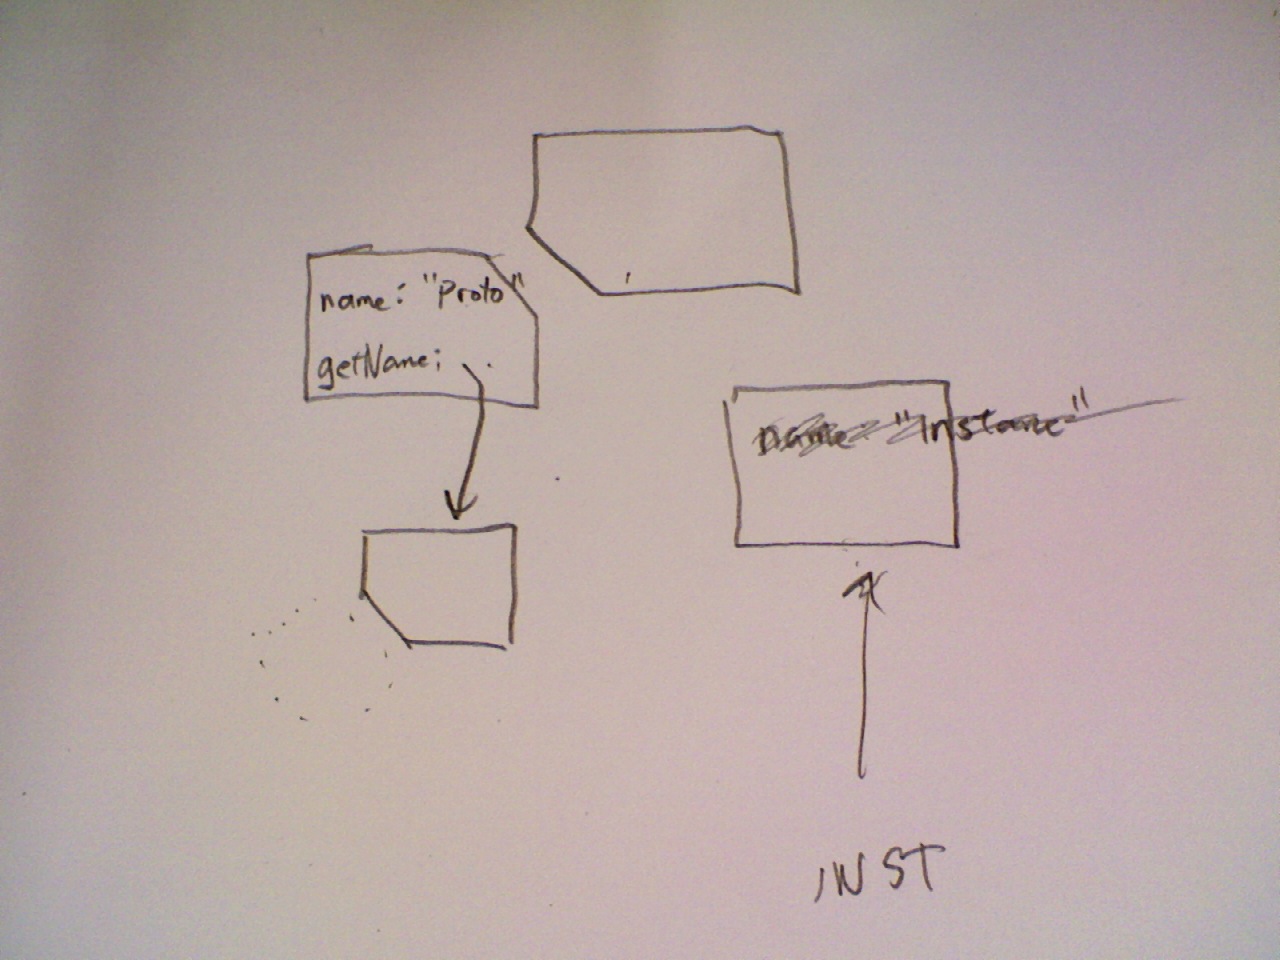 name: "Proto"
getName:
name: "Instane"
INST